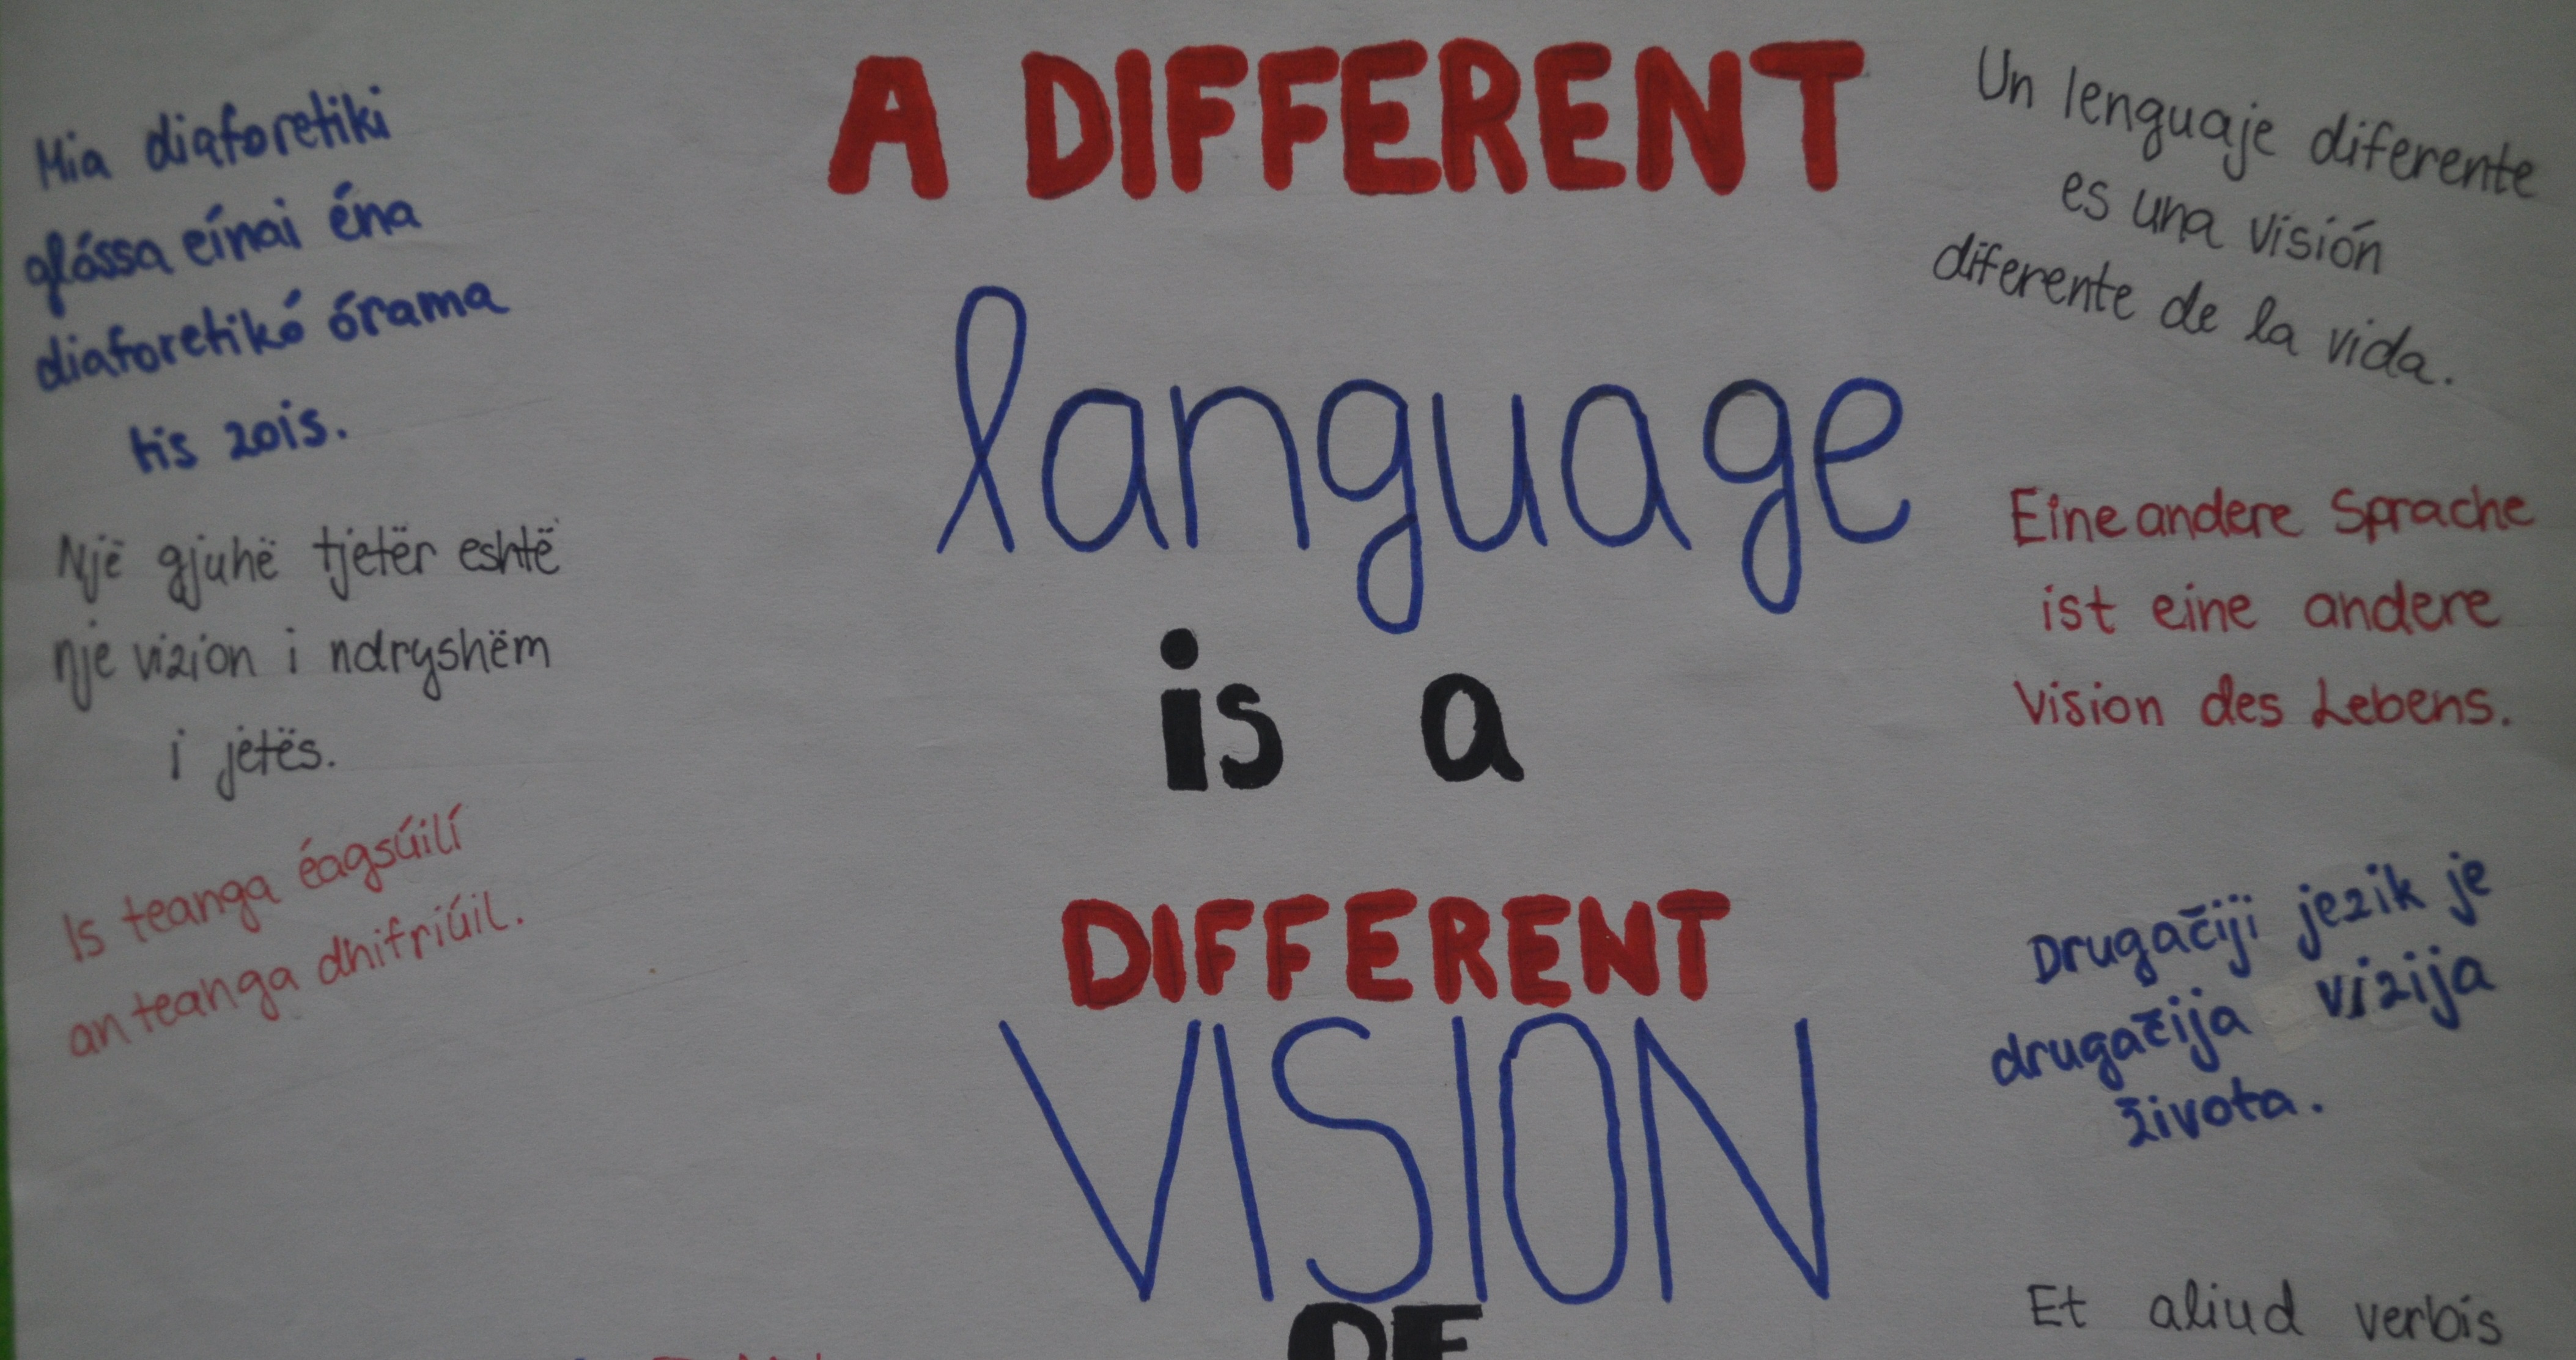 A DIFFERENT
language
is a
DIFFERENT
VISION
OF
Mia diaforetiki
glóssa eínai éna
diaforetikó órama
tis zois.
Një gjuhë tjetër eshtë
nje vizion i ndryshëm
i jetës.
Is teanga éagsúilí
an teanga dhifriúil.
Un lenguaje diferente
es una visión
diferente de la vida.
Eine andere Sprache
ist eine andere
Vision des Lebens.
Drugačiji jezik je
drugačija vizija
života.
Et aliud verbis